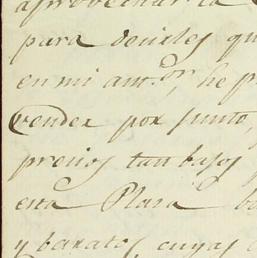 aprovechar la
para decirles qu
en mi ant.or, he p
vender por junto,
precios tan bajos
esta Plasa ba
y baratos, cuyas